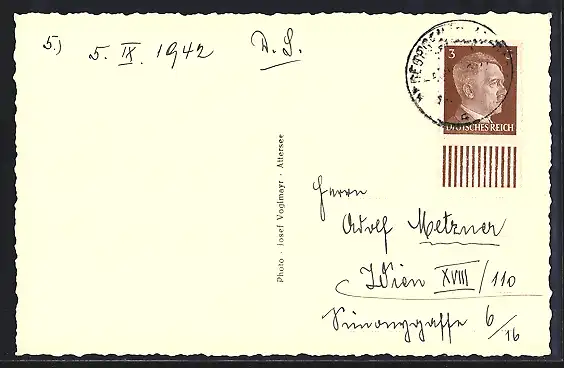 5.) 5. IX. 1942 A. S.
ST. GEORGEN
3
DEUTSCHES REICH
Photo - Josef Voglmayr - Attersee
Herrn
Adolf Metzner
Wien XVIII/110
Simonygasse 6/16